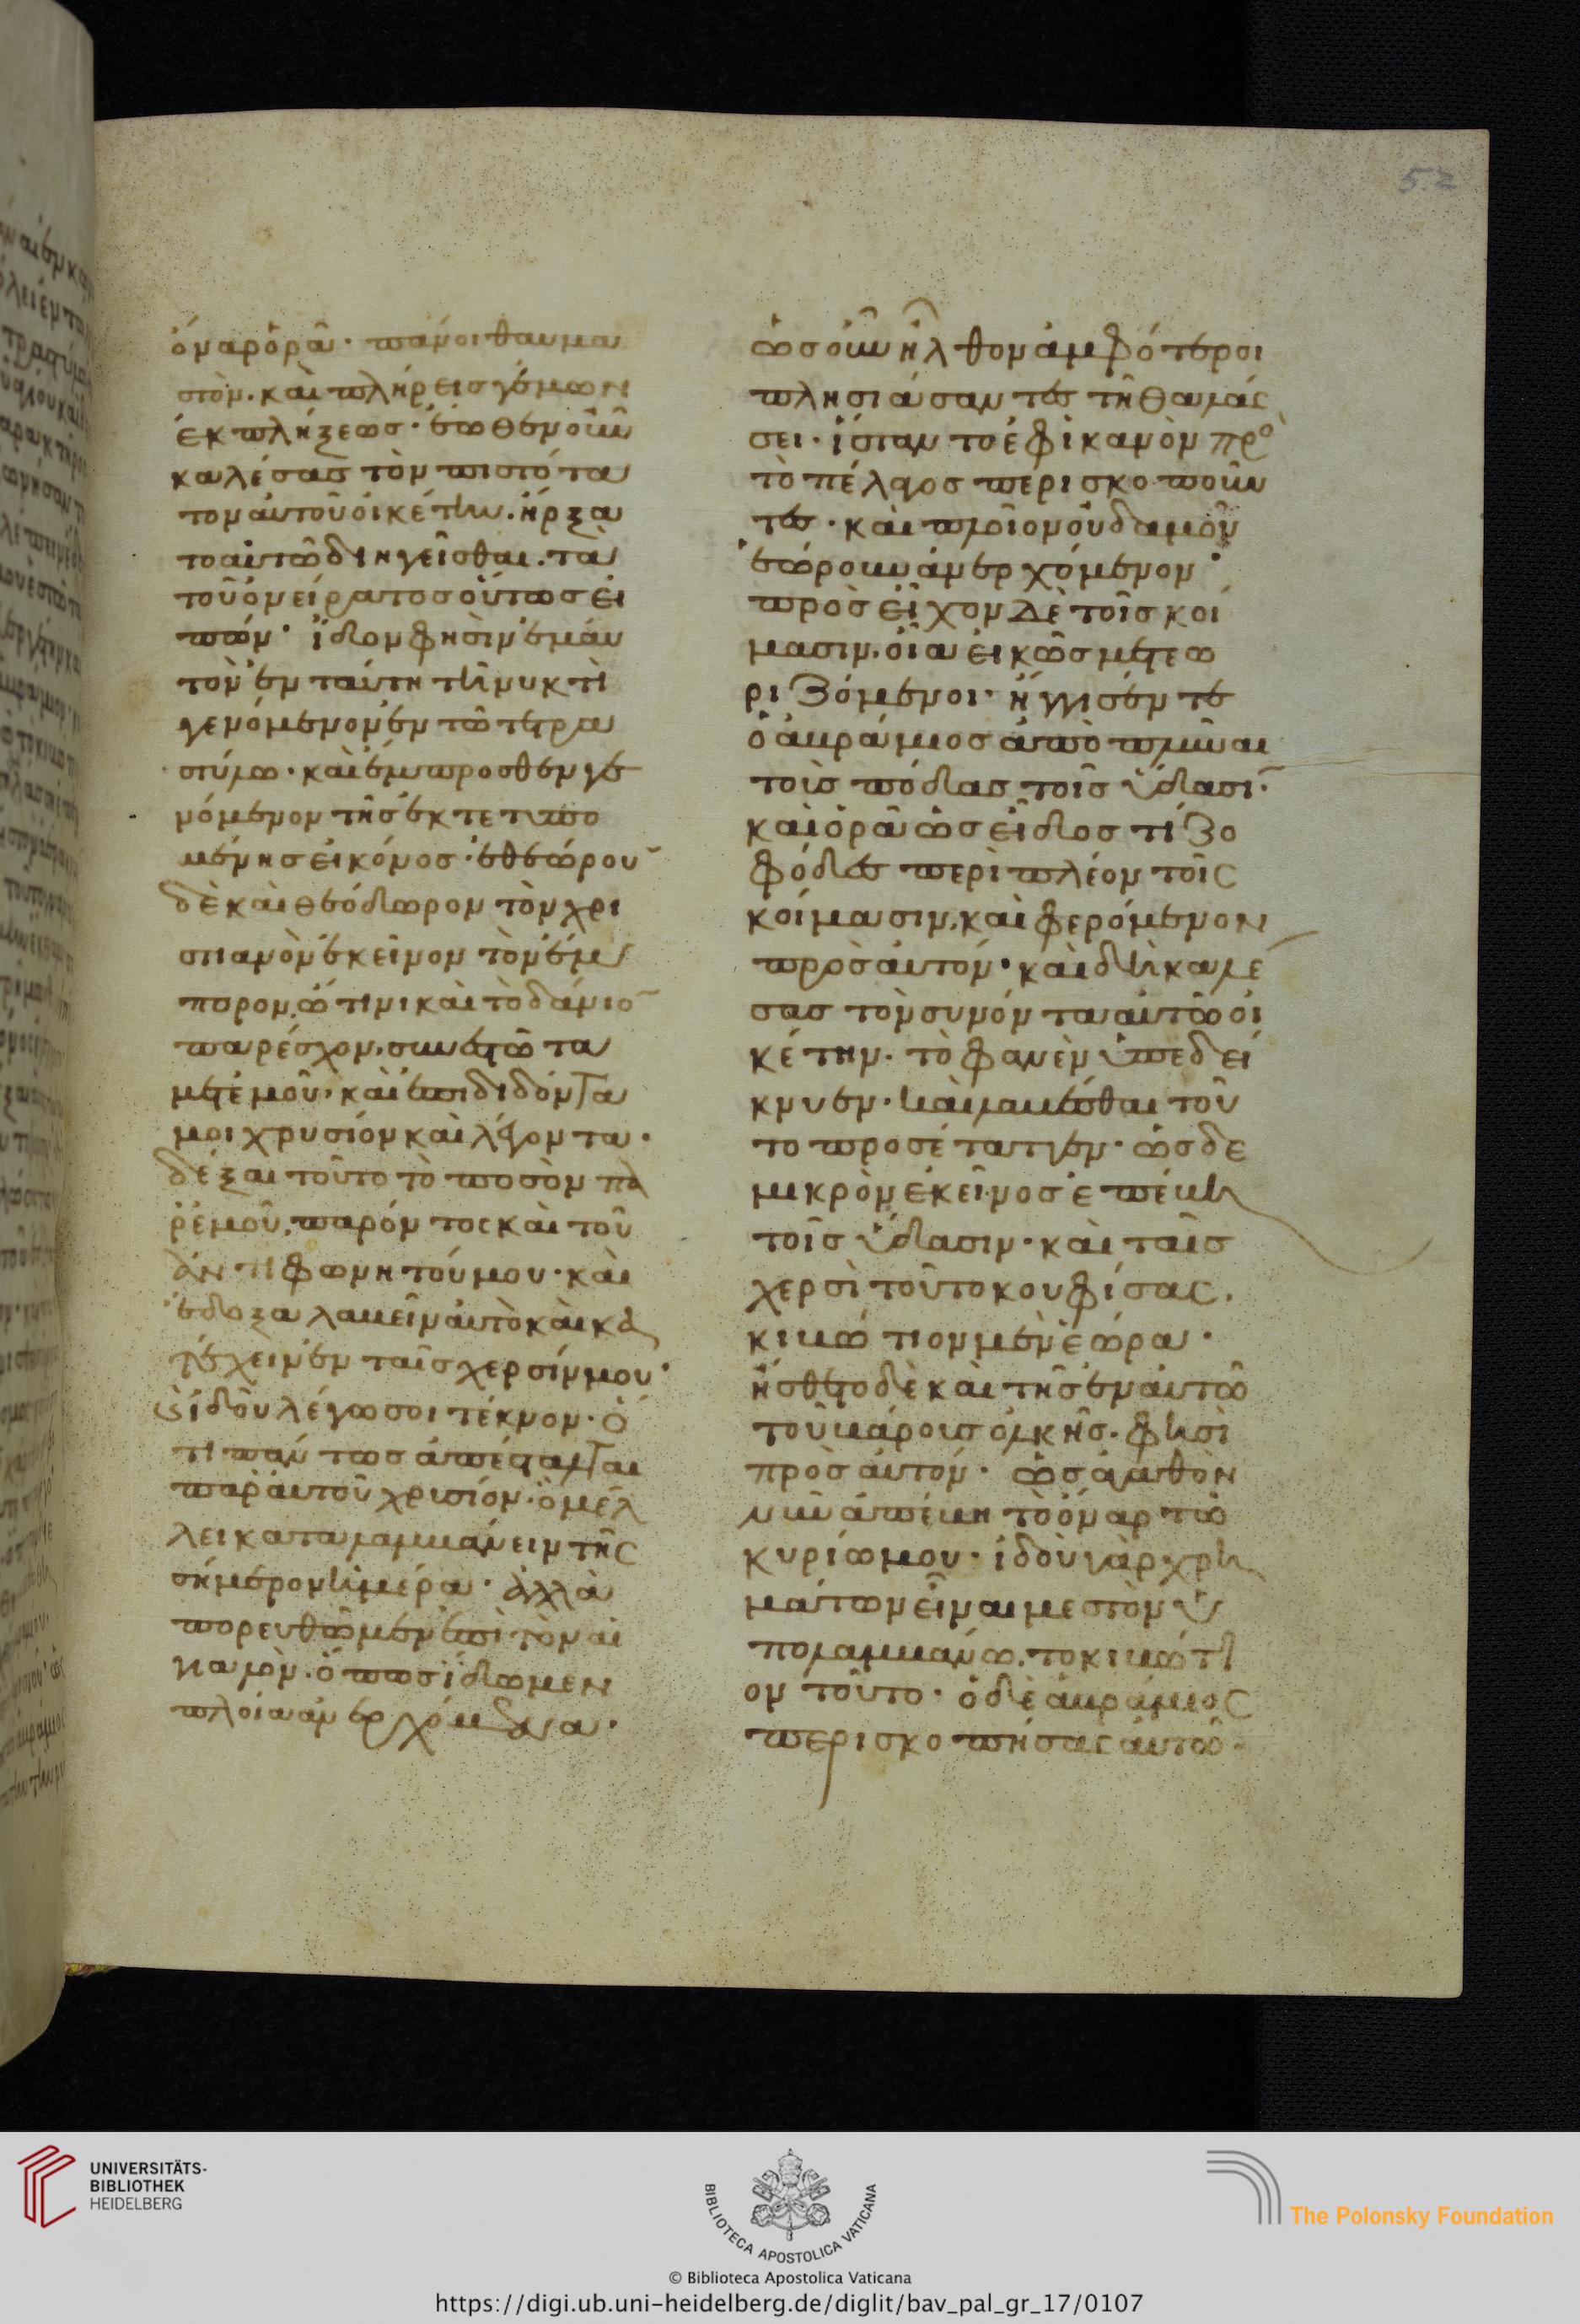 52
ὄναρ ὁρᾶ· πάνοι θαυμα
στὸν. καὶ πλήρεις γέμων
ἐκπλήξεως· ἕωθεν οὖν
καλέσας τὸν πιστότα
τον αὐτοῦ οἰκέτην. ἤρξα
το αὐτῶ διηγεῖσθαι. τὰ
τοῦ ὀνείρατος οὕτως εἰ
πών· ἴδον φησὶν ἐμαυ
τὸν ἐν ταύτη τῆ νυκτὶ
γενόμενον ἐν τῶ τετρα
στύλω. καὶ ἔμπροσθεν γε
νόμενον τῆς ἐκτετυπο
μένης εἰκόνος· ἐθεώρουν
δὲ καὶ θεόδωρον τὸν χρι
στιανὸν ἐκεῖνον τὸν ἔμ
πορον, ᾧτινι καὶ τὸ δάνιον
παρέσχον, συνεστῶτα
μετ ἐμοῦ· καὶ ἐπιδιδόντα
μοι χρυσίον καὶ λέγοντα·
δέξαι τοῦτο τὸ ποσὸν πα
ρ ἐμοῦ, παρόντος καὶ τοῦ
ἀντιφωνητοῦ μου· καὶ
ἔδοξα λαβεῖν αὐτὸ καὶ κα
τέχειν ἐν ταῖς χερσίν μου·
ἰδοὺ λέγω σοι τέκνον. ὅ
τι πάντως ἀπέσταλται
παρ αὐτοῦ χρυσίον. ὃ μέλ
λει καταλαμβάνειν τῆς
σήμερον ἡμέρα· ἀλλὰ
πορευθῶμεν ἐπὶ τὸν αἰ
γιαλὸν. ὅπως ἴδωμεν
πλοῖα ἀνερχόμενα·
ὡς οὖν ἦλθον ἀμφότεροι
πλησιάσαντες τῆ θαλάσ
σει· ἵσταντο ἐφικανὸν πρὸς
τὸ πέλαγος περισκοποῦν
τες· καὶ πλοῖον οὐδαμοῦ
ἑώρουν ἀνερχόμενον·
προσεῖχον δὲ τοῖς κοί
μασιν. οἷα εἰκῶς μετεω
ριζόμενοι· ἤγγισέν τε
ὁ ἀβράμιος ἀποπλῦναι
τοὺς πόδας τοῖς ὕδασιν·
καὶ ὁρᾶ ὡς εἶδος τι ζο
φόδες περιπλέον τοῖς
κοίμασιν, καὶ φερόμενον
πρὸς αὐτόν· καὶ δὴ καλέ
σας τὸν συνόντα αὐτῶ οἰ
κέτην. τὸ φανὲν ὑπεδεί
κνυεν. καὶ λαβέσθαι τοῦ
το προσέταττεν· ὡς δὲ
μικρὸν ἐκεῖνος ἐπέβη
τοῖς ὕδασιν· καὶ ταῖς
χερσὶ τοῦτο κουφίσας.
κιβώτιον μὲν ἑώρα·
ἤσθετο δὲ καὶ τῆς ἐν αὐτῶ
τοῦ βάρους ὁλκῆς. φησὶ
πρὸς αὐτόν· ὡς ἀγαθὸν
νῦν ἀπέβη τὸ ὄναρ τῶ
κυρίω μου· ἰδοὺ γὰρ χρη
μάτων εἶναι μεστὸν ὑ
πολαμβάνω. το κιβώτι
ον τοῦτο· ὁ δὲ ἀβράμιος
περισκοπήσας αὐτῶ·
UNIVERSITÄTS-
BIBLIOTHEK
HEIDELBERG
BIBLIOTECA APOSTOLICA VATICANA
The Polonsky Foundation
© Biblioteca Apostolica Vaticana
https://digi.ub.uni-heidelberg.de/diglit/bav_pal_gr_17/0107